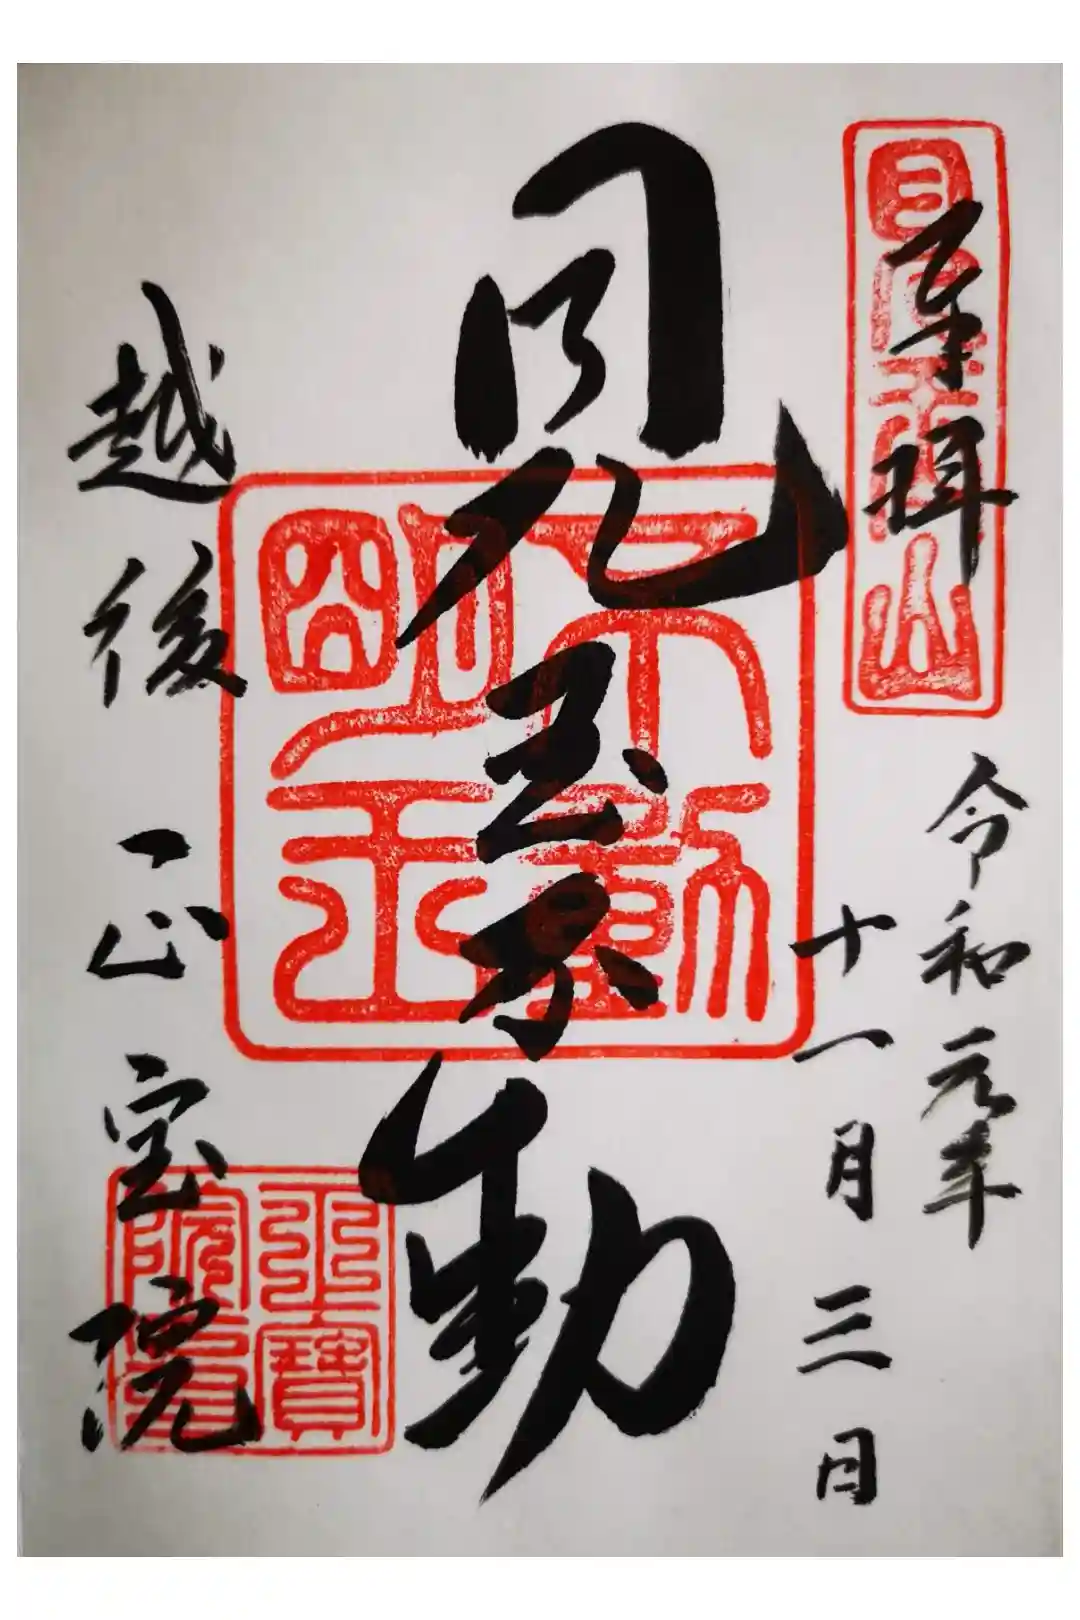 奉拝
令和元年
十一月三日
見玉不動
不動
明王
越後正宝院
正寶
院印